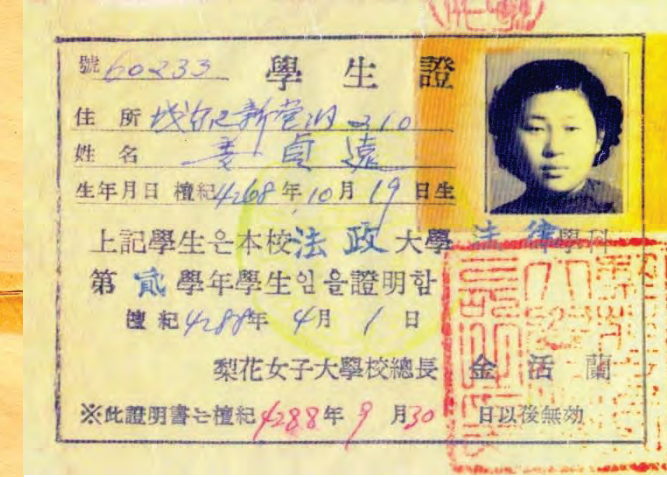 號 60233 學生證
住所 新堂洞 310
姓名 姜貞遠
生年月日 檀紀4268年10月19日生
上記學生은本校法政大學 法律學科
第貳學年學生임을證明함
檀紀4288年4月1日
梨花女子大學校總長 金活蘭
※此證明書는檀紀4288年9月30日以後無効